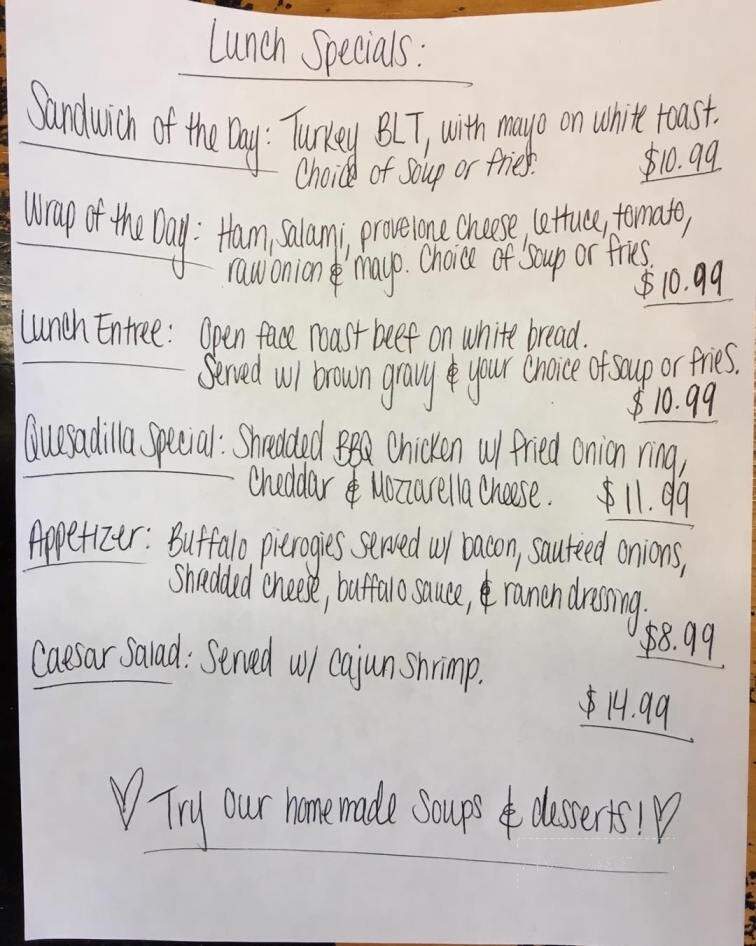 Lunch Specials:
Sandwich of the Day: Turkey BLT, with mayo on white toast.
Choice of soup or fries. $10.99
Wrap of the Day: Ham, salami, provelone cheese, lettuce, tomato,
raw onion & mayo. Choice of soup or fries.
$10.99
Lunch Entree: Open face roast beef on white bread.
Served w/ brown gravy & your choice of soup or fries.
$10.99
Quesadilla Special: Shredded BBQ Chicken w/ fried onion ring,
Cheddar & Mozzarella Cheese. $11.99
Appetizer: Buffalo pierogies served w/ bacon, sautéed onions,
Shredded cheese, buffalo sauce, & ranch dressing.
$8.99
Caesar Salad: Served w/ Cajun Shrimp.
$14.99
♡ Try our homemade Soups & desserts! ♡